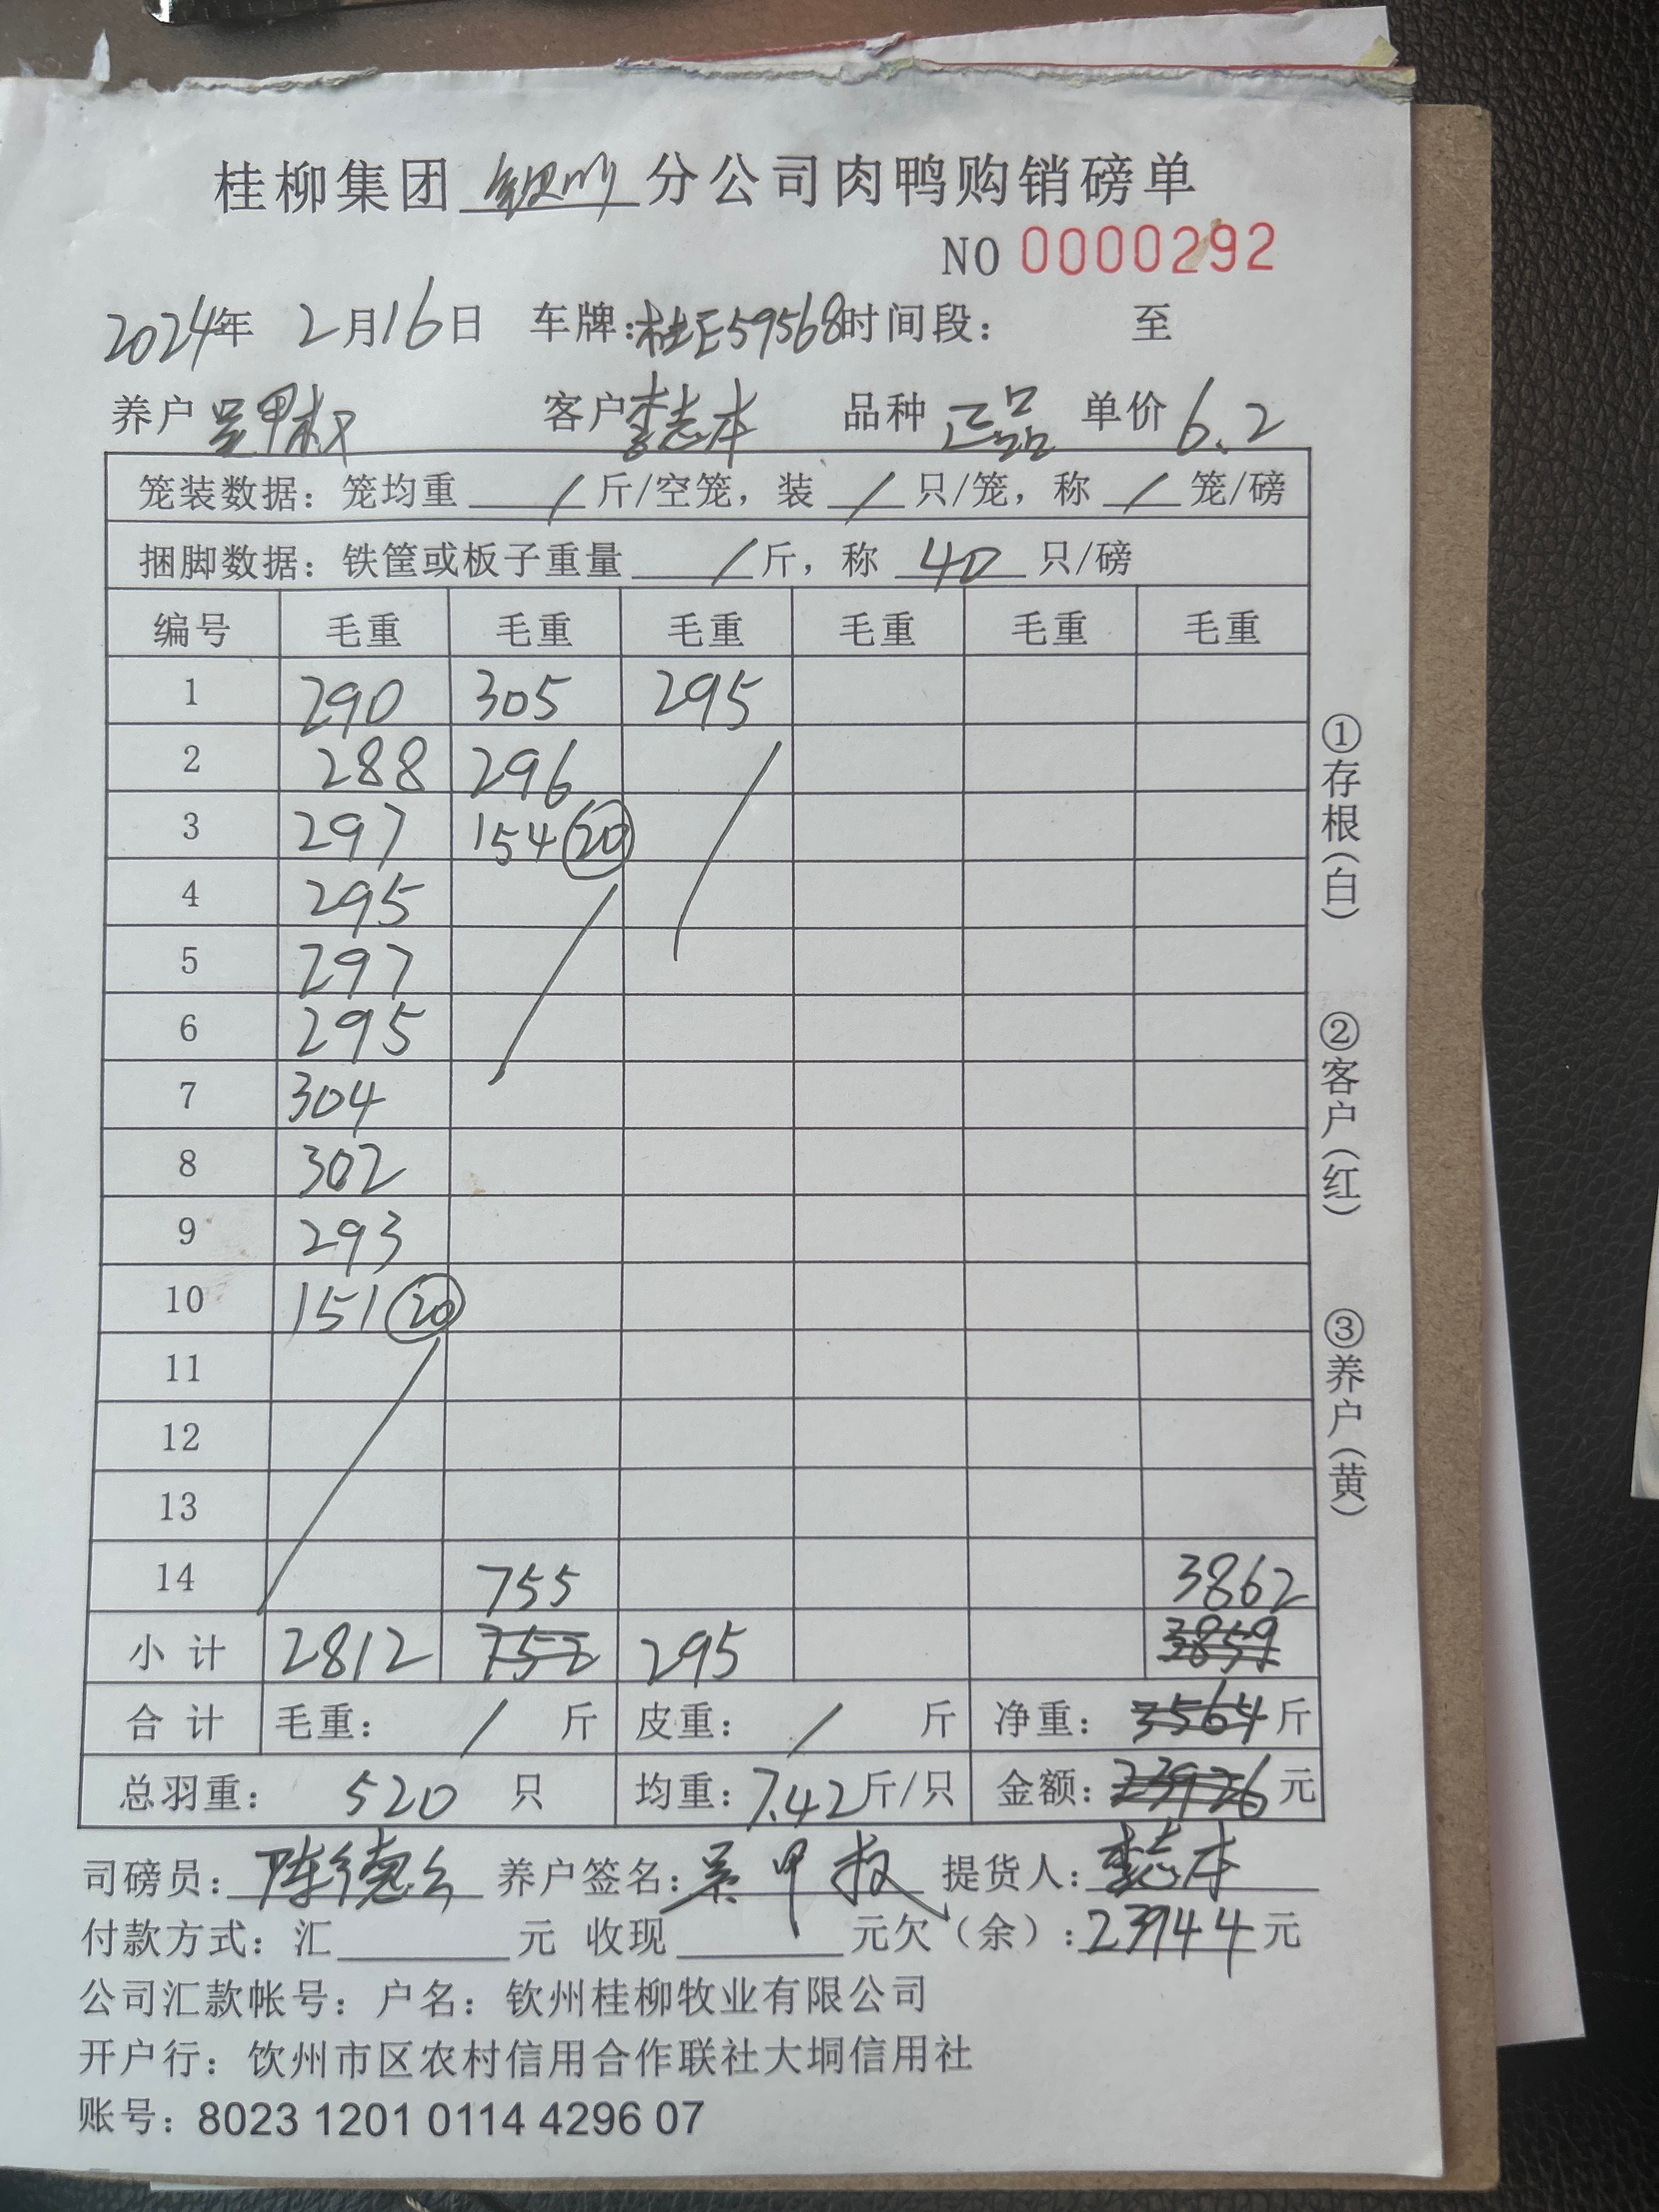 桂柳集团 钦州 分公司肉鸭购销磅单
NO 0000292
2024年 2月16日 车牌:桂E59568时间段: 至
养户 吴甲权 客户 李志本 品种 正品 单价 6.2
笼装数据: 笼均重 / 斤/空笼, 装 / 只/笼, 称 / 笼/磅
捆脚数据: 铁筐或板子重量 / 斤, 称 40 只/磅
编号 毛重 毛重 毛重 毛重 毛重 毛重
1 290 305 295
2 288 296
3 297 154 20
4 295
5 297
6 295
7 304
8 302
9 293
10 151 20
11
12
13
14 755 3862
小计 2812 752 295 3859
合计 毛重: / 斤 皮重: / 斤 净重: 3564 斤
总羽重: 520 只 均重: 7.42斤/只 金额: 23926 元
司磅员: 陈德 养户签名: 吴甲权 提货人: 李志本
付款方式: 汇 元 收现 元欠(余): 23944 元
公司汇款帐号: 户名: 钦州桂柳牧业有限公司
开户行: 钦州市区农村信用合作联社大垌信用社
账号: 8023 1201 0114 4296 07
①存根(白)
②客户(红)
③养户(黄)